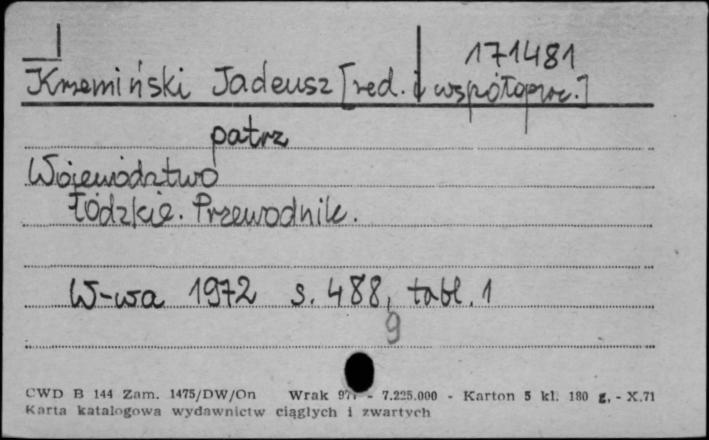 171481
Krzemiński Tadeusz [red. i współoprac.]
patrz
Województwo
Łódzkie. Przewodnik.
W-wa 1972 s. 488, tabl. 1
9
CWD B 144 Zam. 1475/DW/On Wrak - 7.225.000 - Karton 5 kl. 180 g, - X.71
Karta katalogowa wydawnictw ciągłych i zwartych